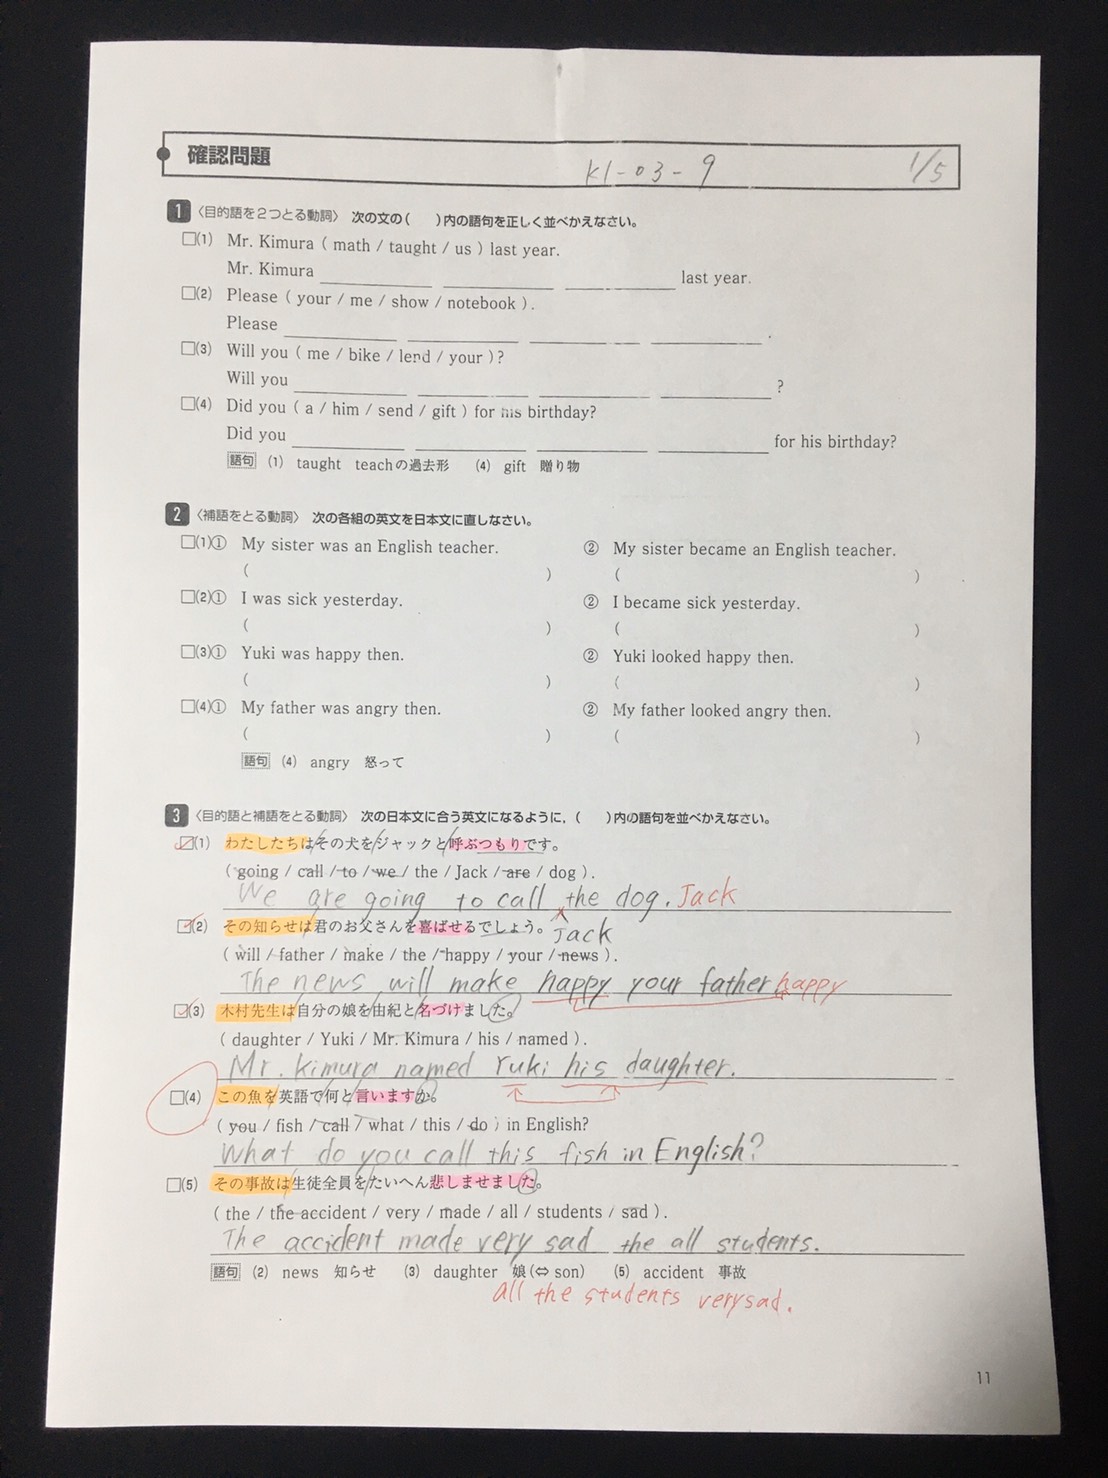 確認問題 K1-03-9 1/5
1 〈目的語を2つとる動詞〉 次の文の( )内の語句を正しく並べかえなさい。
□(1) Mr. Kimura ( math / taught / us ) last year.
Mr. Kimura ____ ____ ____ last year.
□(2) Please ( your / me / show / notebook ).
Please ____ ____ ____ ____ .
□(3) Will you ( me / bike / lend / your )?
Will you ____ ____ ____ ____ ?
□(4) Did you ( a / him / send / gift ) for his birthday?
Did you ____ ____ ____ ____ for his birthday?
語句 (1) taught teachの過去形 (4) gift 贈り物
2 〈補語をとる動詞〉 次の各組の英文を日本文に直しなさい。
□(1)① My sister was an English teacher. ② My sister became an English teacher.
( ) ( )
□(2)① I was sick yesterday. ② I became sick yesterday.
( ) ( )
□(3)① Yuki was happy then. ② Yuki looked happy then.
( ) ( )
□(4)① My father was angry then. ② My father looked angry then.
( ) ( )
語句 (4) angry 怒って
3 〈目的語と補語をとる動詞〉 次の日本文に合う英文になるように,( )内の語句を並べかえなさい。
□(1) わたしたちはその犬をジャックと呼ぶつもりです。
( going / call / to / we / the / Jack / are / dog ).
We are going to call the dog. Jack
□(2) その知らせは君のお父さんを喜ばせるでしょう。 Jack
( will / father / make / the / happy / your / news ).
The news will make happy your father happy
□(3) 木村先生は自分の娘を由紀と名づけました。
( daughter / Yuki / Mr. Kimura / his / named ).
Mr. kimura named Yuki his daughter.
□(4) この魚を英語で何と言いますか。
( you / fish / call / what / this / do ) in English?
What do you call this fish in English?
□(5) その事故は生徒全員をたいへん悲しませました。
( the / the accident / very / made / all / students / sad ).
The accident made very sad the all students.
語句 (2) news 知らせ (3) daughter 娘(⇔ son) (5) accident 事故
all the students very sad.
11